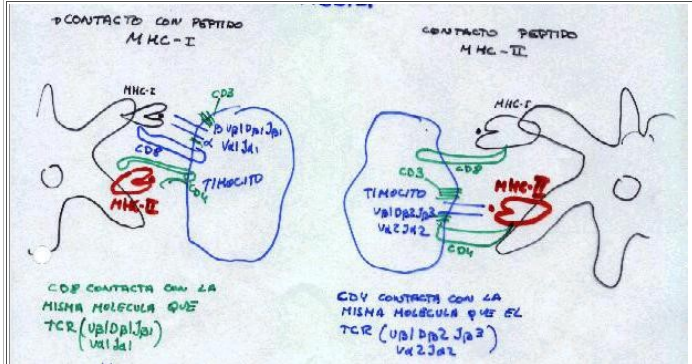 CONTACTO CON PEPTIDO
MHC-I
MHC-I
CD3
β Vβ1Dβ1Jβ1
α Vα1Jα1
CD8
TIMOCITO
CD4
MHC-II
CD8 CONTACTA CON LA
MISMA MOLECULA QUE
TCR (Vβ1Dβ1Jβ1)
Vα1Jα1
CONTACTO PEPTIDO
MHC-II
MHC-I
CD8
CD3
TIMOCITO
MHC-II
Vβ1Dβ2Jβ3
Vα2Jα2
CD4
CD4 CONTACTA CON LA
MISMA MOLECULA QUE EL
TCR (Vβ1Dβ2Jβ3)
Vα2Jα2